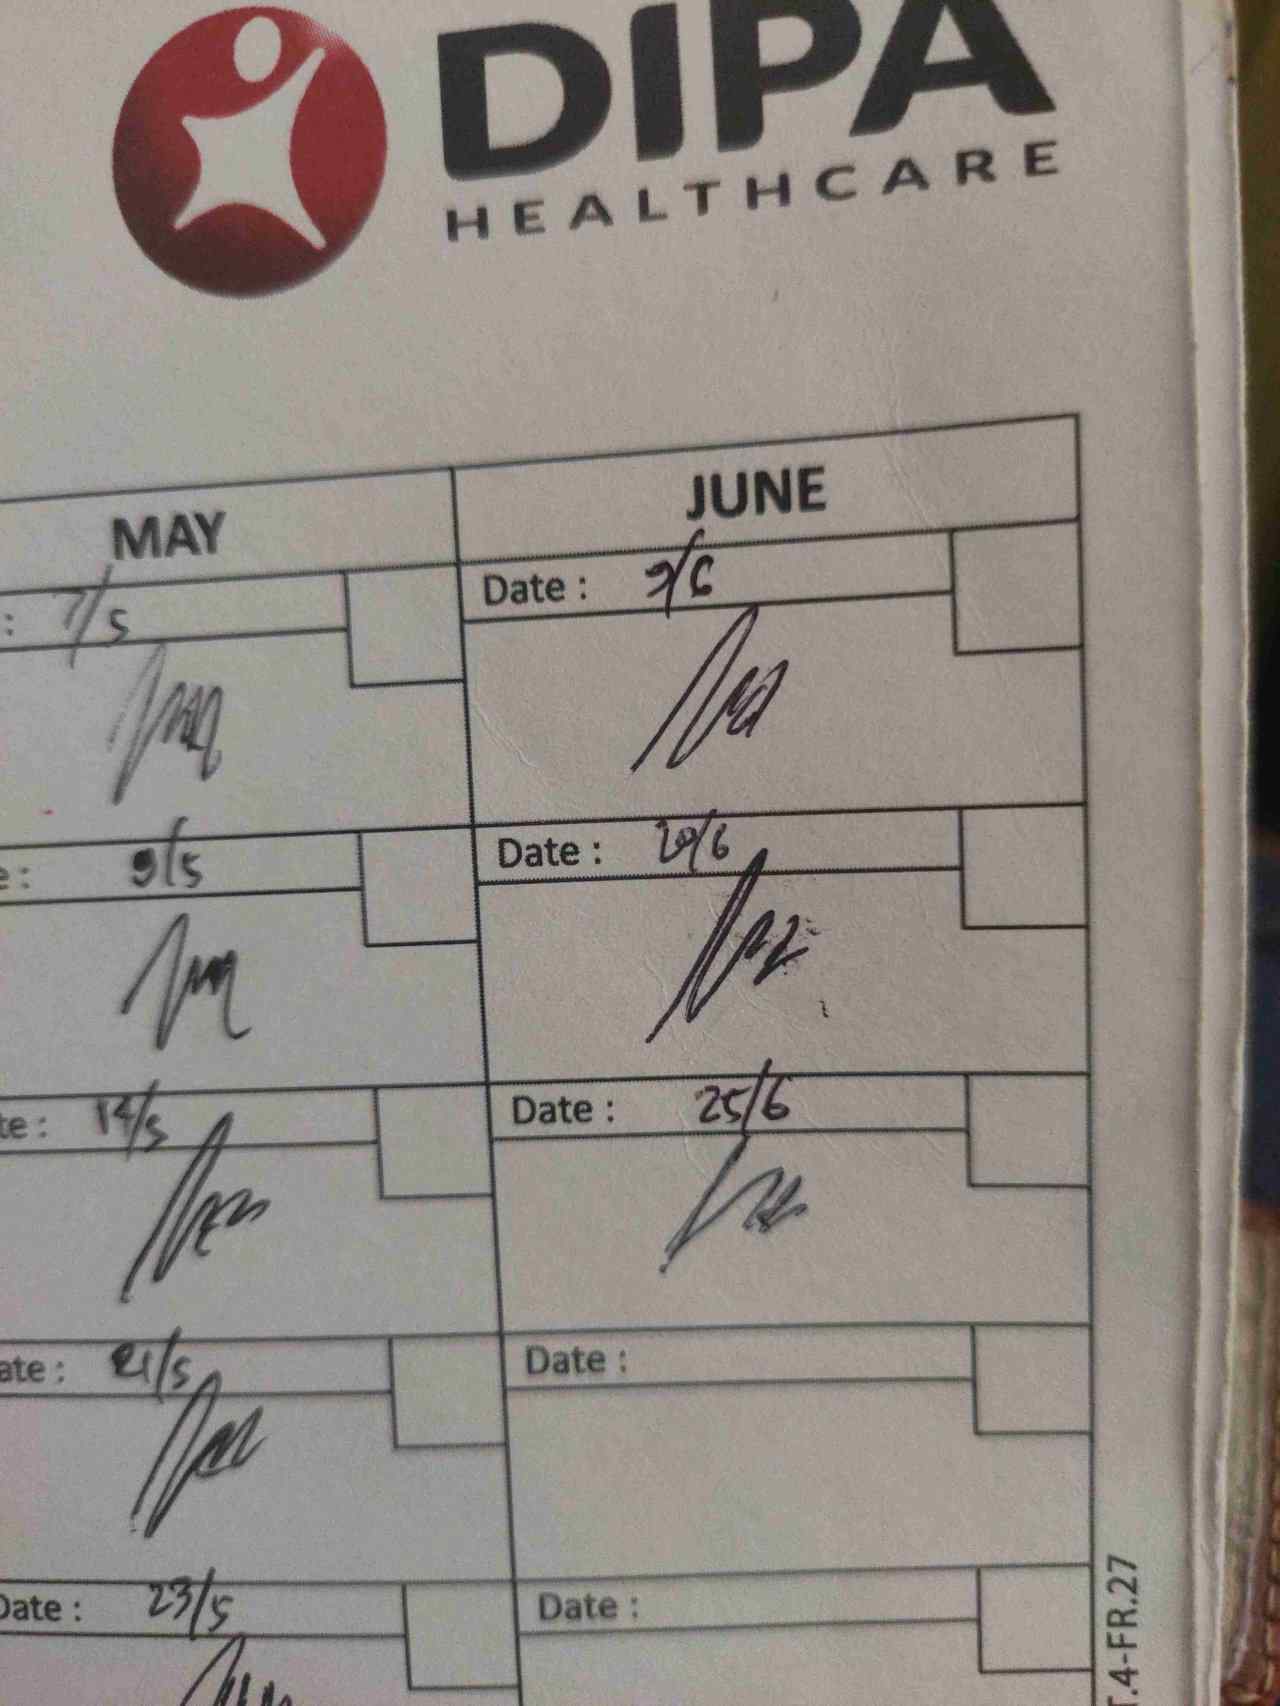 DIPA
HEALTHCARE
MAY
JUNE
: 7/5
Date : 9/6
e : 9/5
Date : 20/6
te : 14/5
Date : 25/6
ate : 21/5
Date :
Date : 23/5
Date :
T.4-FR.27